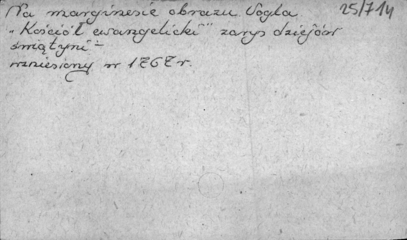 Na marginesie obrazu Vogla 25/714
"Kościół ewangelicki" zarys dziejów
świątyni -
wzniesiony w 1767 r.